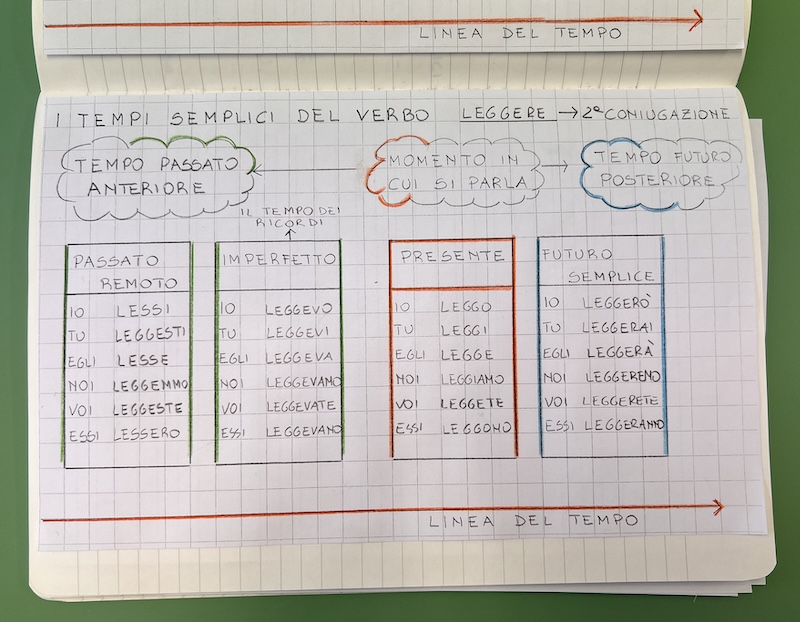 LINEA DEL TEMPO
I TEMPI SEMPLICI DEL VERBO LEGGERE → 2ª CONIUGAZIONE
TEMPO PASSATO
ANTERIORE
MOMENTO IN
CUI SI PARLA
TEMPO FUTURO
POSTERIORE
IL TEMPO DEI
RICORDI
PASSATO
REMOTO
IO LESSI
TU LEGGESTI
EGLI LESSE
NOI LEGGEMMO
VOI LEGGESTE
ESSI LESSERO
IMPERFETTO
IO LEGGEVO
TU LEGGEVI
EGLI LEGGEVA
NOI LEGGEVAMO
VOI LEGGEVATE
ESSI LEGGEVANO
PRESENTE
IO LEGGO
TU LEGGI
EGLI LEGGE
NOI LEGGIAMO
VOI LEGGETE
ESSI LEGGONO
FUTURO
SEMPLICE
IO LEGGERÒ
TU LEGGERAI
EGLI LEGGERÀ
NOI LEGGEREMO
VOI LEGGERETE
ESSI LEGGERANNO
LINEA DEL TEMPO